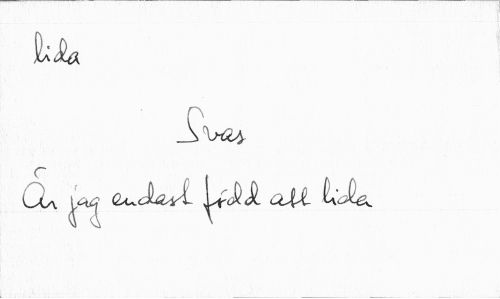 lida
Svas
Är jag endast född att lida